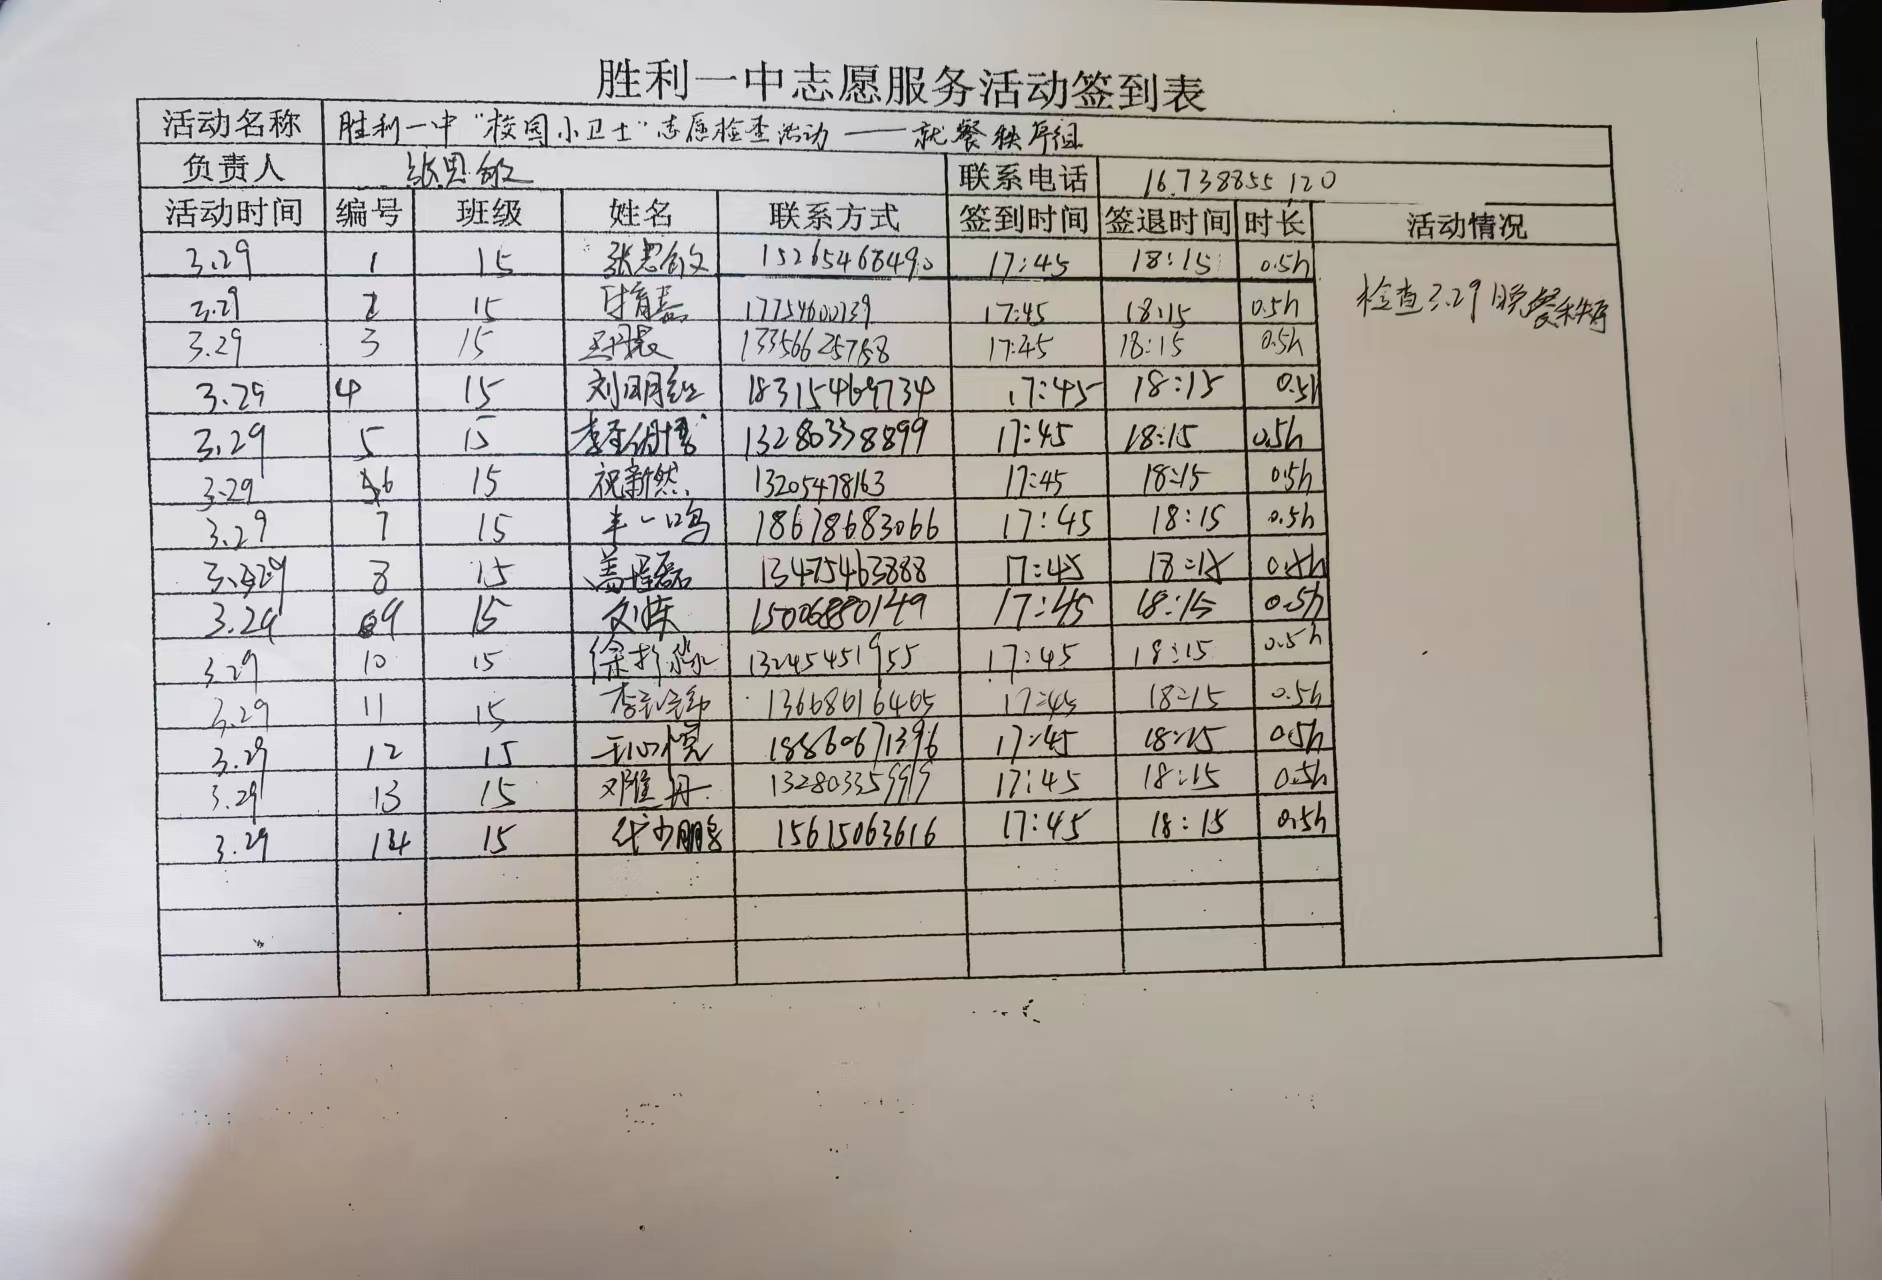 胜利一中志愿服务活动签到表
活动名称 胜利一中“校园小卫士”志愿检查活动——就餐秩序组
负责人 张思敏 联系电话 16738855120
活动时间 编号 班级 姓名 联系方式 签到时间 签退时间 时长 活动情况
3.29 1 15 张思敏 15265468490 17:45 18:15 0.5h
检查3.29晚餐秩序
3.29 2 15 17:45 18:15 0.5h
3.29 3 15 13356625758 17:45 18:15 0.5h
3.29 4 15 刘明红 18315469734 17:45 18:15 0.5h
3.29 5 15 13280338899 17:45 18:15 0.5h
3.29 6 15 祝新然 13205478163 17:45 18:15 0.5h
3.29 7 15 丰一鸣 18678683066 17:45 18:15 0.5h
3.29 8 15 13475463888 17:45 18:15 0.5h
3.29 9 15 15006880149 17:45 18:15 0.5h
3.29 10 15 13245451955 17:45 18:15 0.5h
3.29 11 15 13668616465 17:45 18:15 0.5h
3.29 12 15 王心悦 18860671396 17:45 18:15 0.5h
3.29 13 15 邓雅丹 13280335999 17:45 18:15 0.5h
3.29 14 15 代少鹏 15615063616 17:45 18:15 0.5h